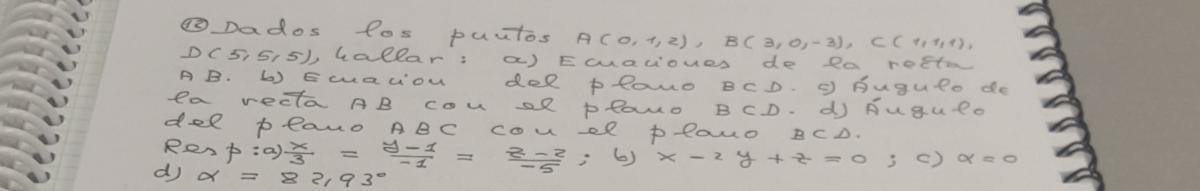 ⑫ Dados los puntos A(0,1,2), B(3,0,-3), C(1,1,1),
D(5,5,5), hallar: a) Ecuaciones de la recta
AB. b) Ecuacion del plano BCD. c) Ángulo de
la recta AB con el plano BCD. d) Ángulo
del plano ABC con el plano BCD.
Resp: a) x/3 = y-1/-1 = z-2/-5 ; b) x-2y+z=0 ; c) α=0
d) α = 82,93°